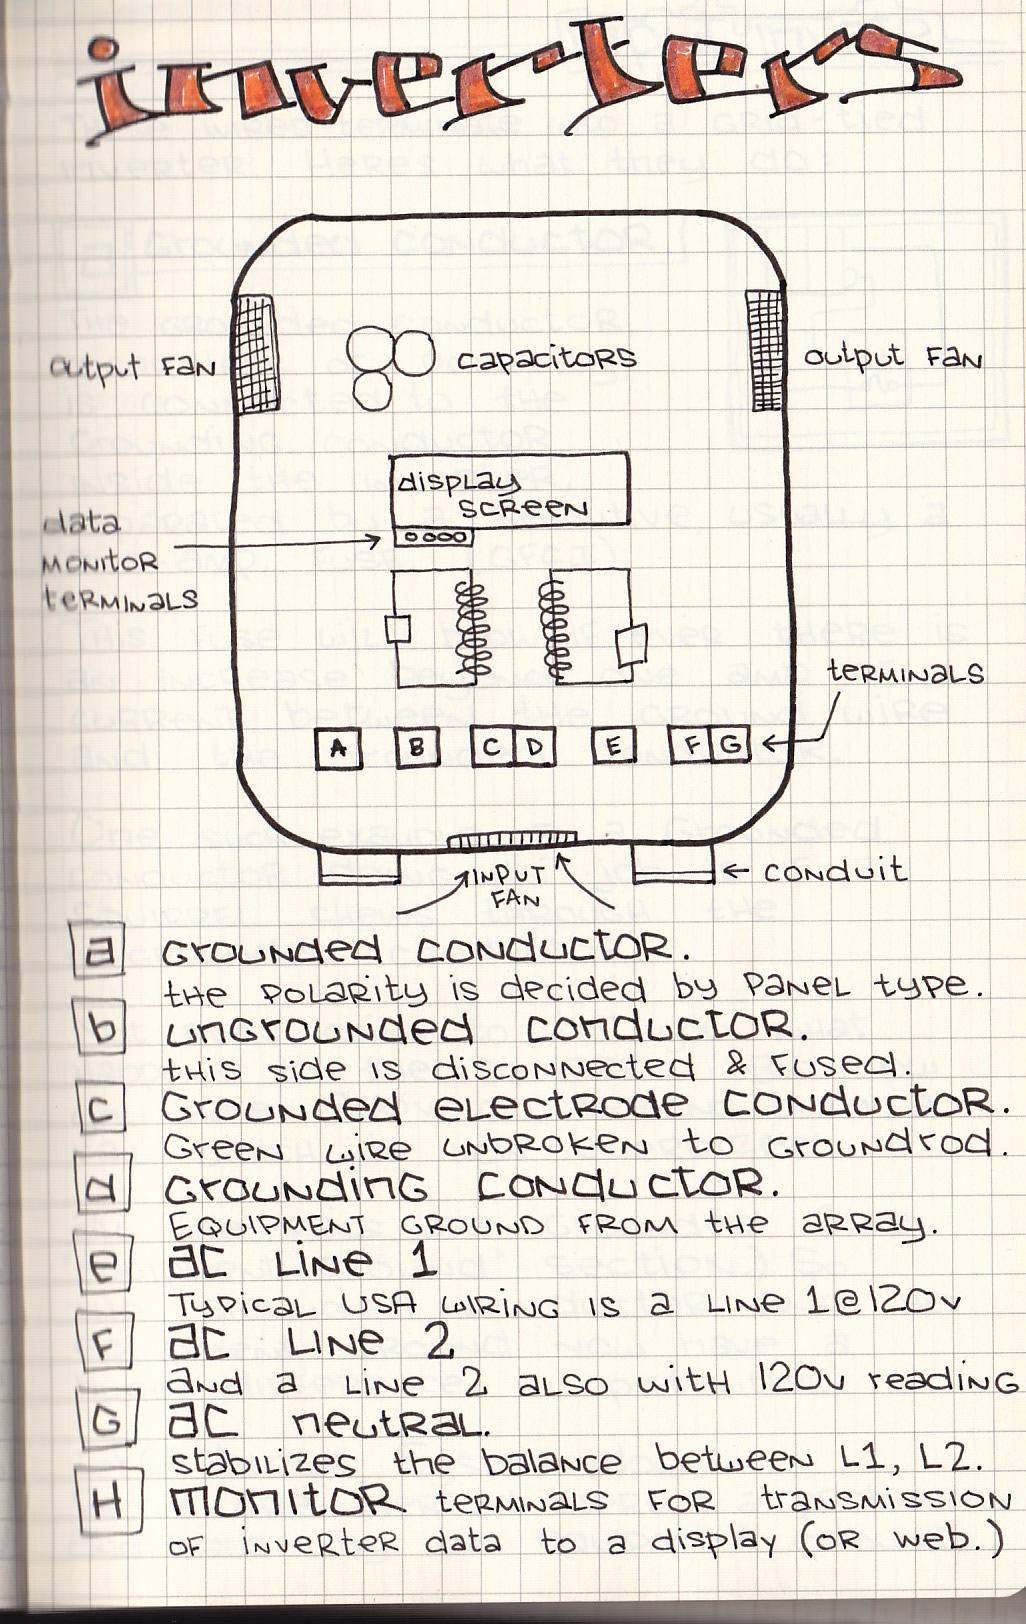 inverters
output FAN
capacitors
output FAN
display
SCREEN
data
MONITOR
terminals
terminals
A B C D E F G
INPUT
FAN
conduit
a Grounded conductor.
the polarity is decided by panel type.
b ungrounded conductor.
this side is disconnected & fused.
c Grounded electrode conductor.
Green wire unbroken to groundrod.
d Grounding conductor.
EQUIPMENT GROUND FROM the array.
e ac Line 1
Typical USA wiring is a line 1@120v
F ac Line 2
and a line 2 also with 120v reading
G ac neutral.
stabilizes the balance between L1, L2.
H monitor terminals for transmission
of inverter data to a display (or web.)